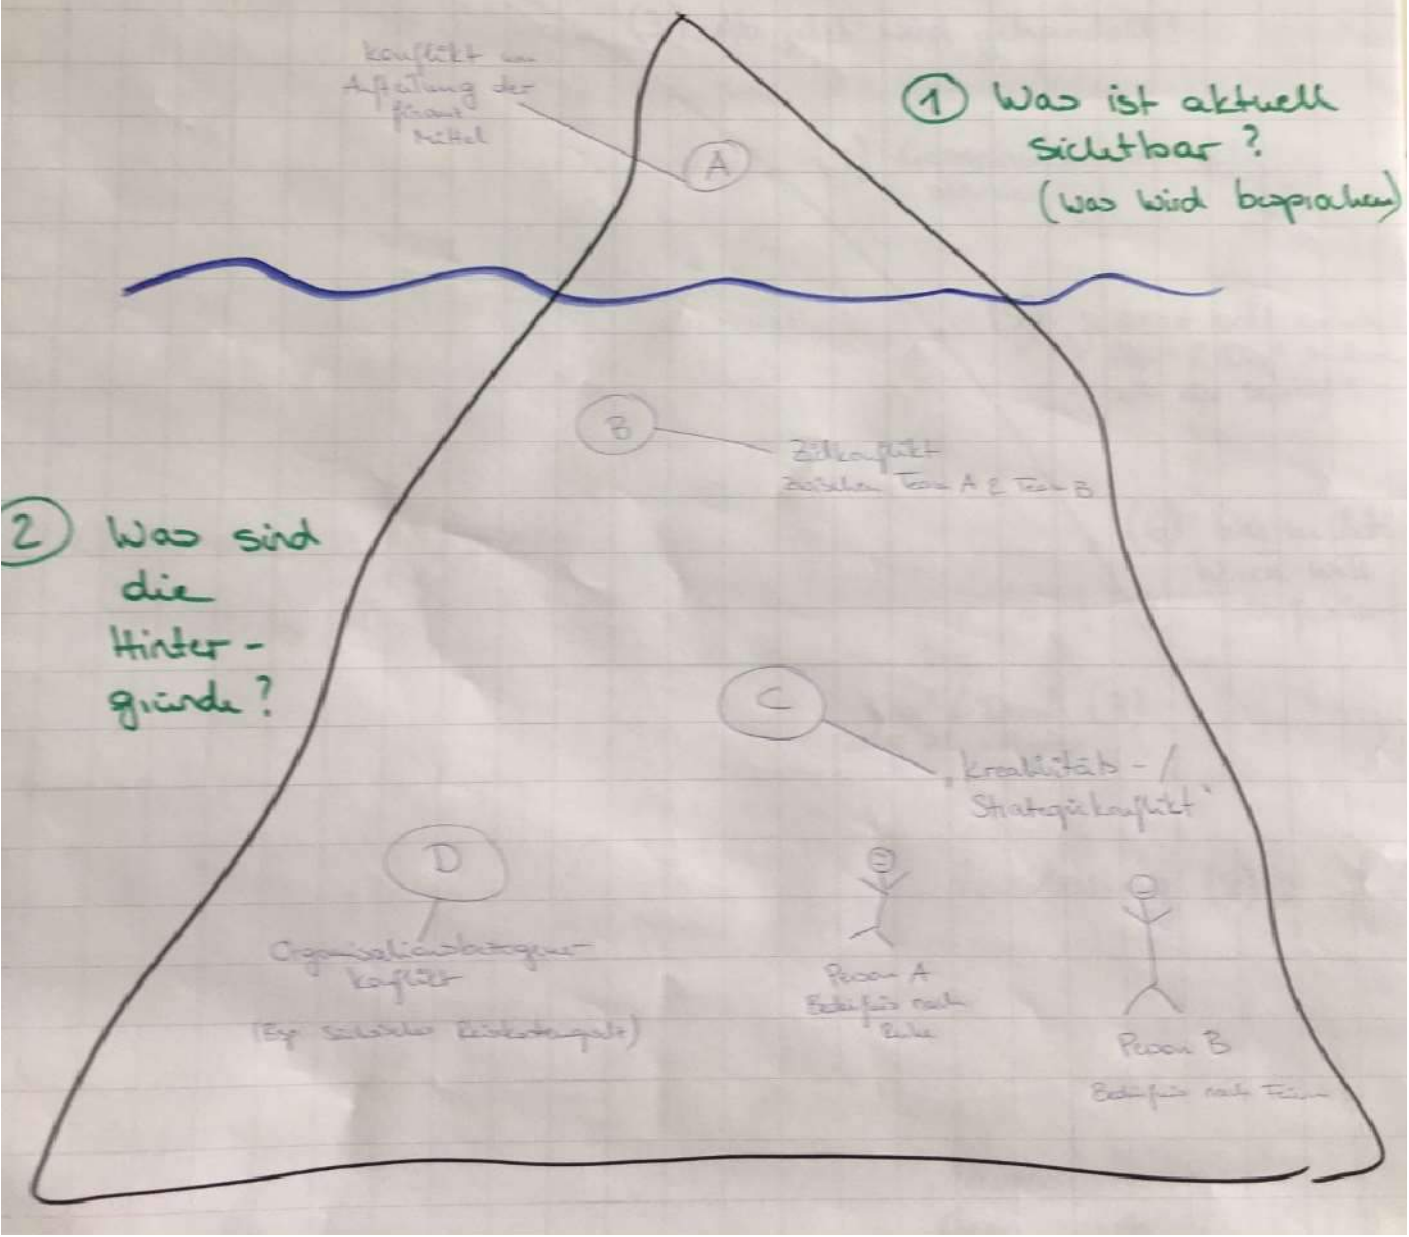 Konflikt um
Aufteilung der
finanz
Mittel
A
① Was ist aktuell
sichtbar?
(Was wird besprochen)
B
Zielkonflikt
zwischen Team A & Team B
② Was sind
die
Hinter-
gründe?
C
„Kreativitäts-/
Strategiekonflikt"
D
Organisationsbezogener
Konflikt
Person A
Bedürfnis nach
Ruhe
Person B
Bedürfnis nach